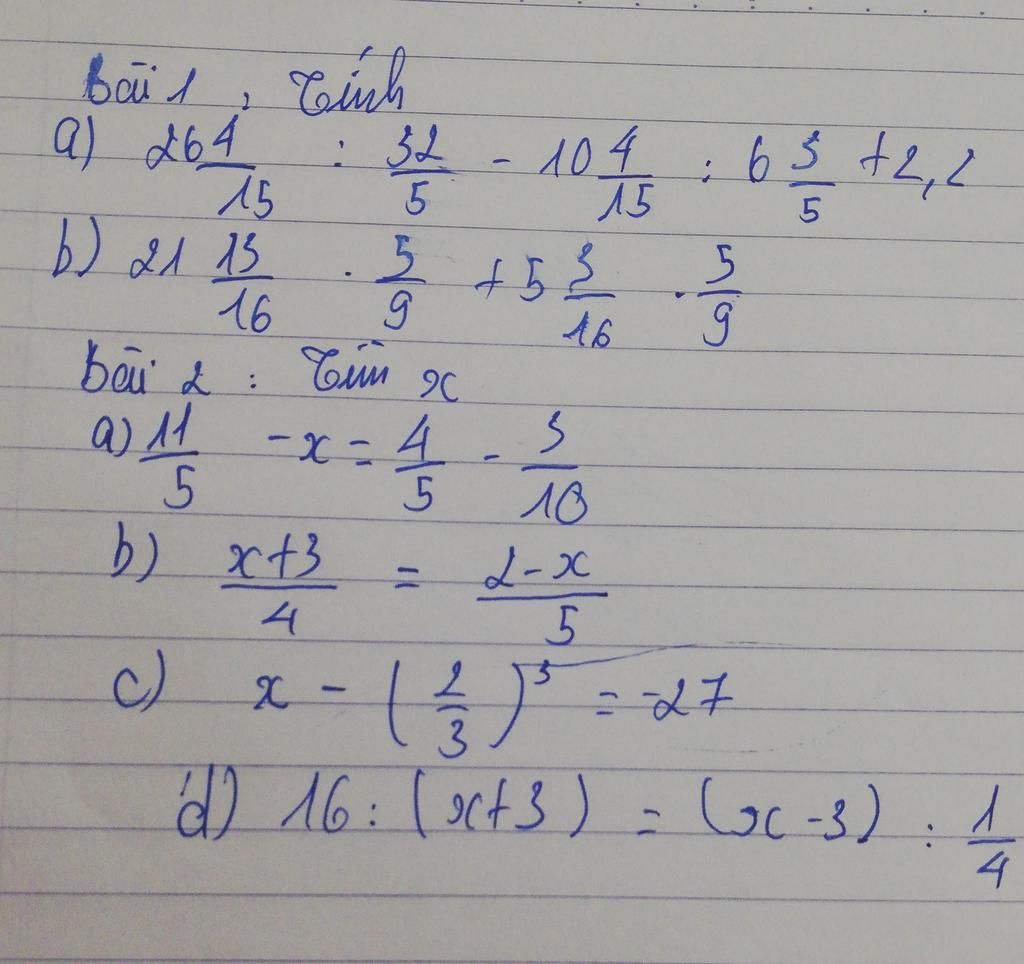 Bài 1, Tính
a) 26 4/15 : 32/5 - 10 4/15 : 6 3/5 + 2,2
b) 21 13/16 . 5/9 + 5 3/16 . 5/9
Bài 2 : Tìm x
a) 11/5 - x = 4/5 - 3/10
b) x+3/4 = 2-x/5
c) x - (2/3)³ = -27
d) 16 : (x+3) = (x-3) : 1/4